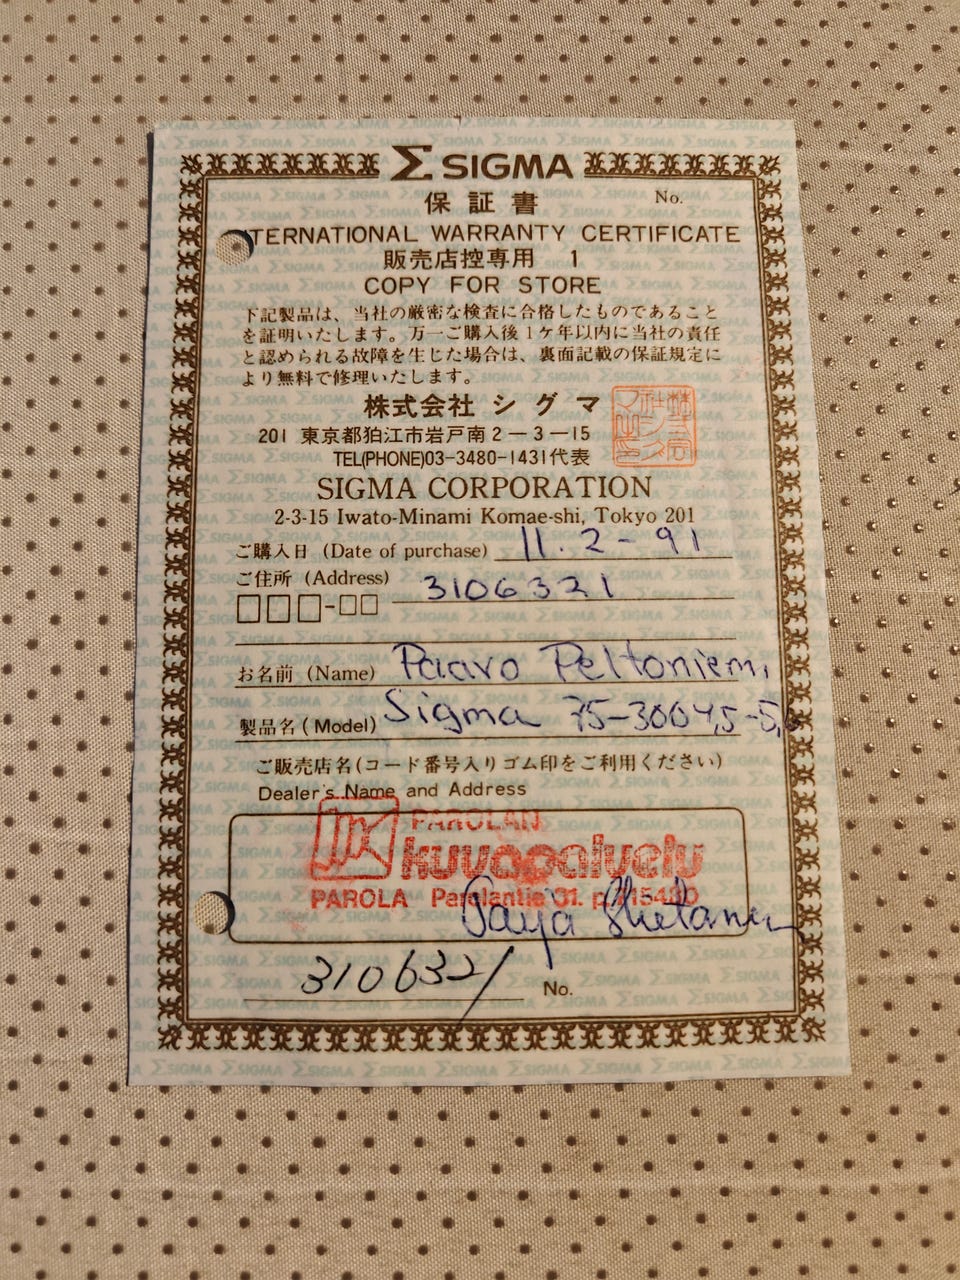 ΣSIGMA
保証書 No.
TERNATIONAL WARRANTY CERTIFICATE
販売店控専用 1
COPY FOR STORE
下記製品は、当社の厳密な検査に合格したものであること
を証明いたします。万一ご購入後1ケ年以内に当社の責任
と認められる故障を生じた場合は、裏面記載の保証規定に
より無料で修理いたします。
株式会社 シグマ
201 東京都狛江市岩戸南2-3-15
TEL(PHONE)03-3480-1431代表
SIGMA CORPORATION
2-3-15 Iwato-Minami Komae-shi, Tokyo 201
ご購入日 (Date of purchase) 11.2-91
ご住所 (Address) 3106321
□□□-□□
お名前 (Name) Paavo Peltoniemi
製品名 (Model) Sigma 75-300 4,5-5,6
ご販売店名(コード番号入りゴム印をご利用ください)
Dealer's Name and Address
PAROLAN
kuvapalvelu
PAROLA Parolantie 31. p.
3106321 No.